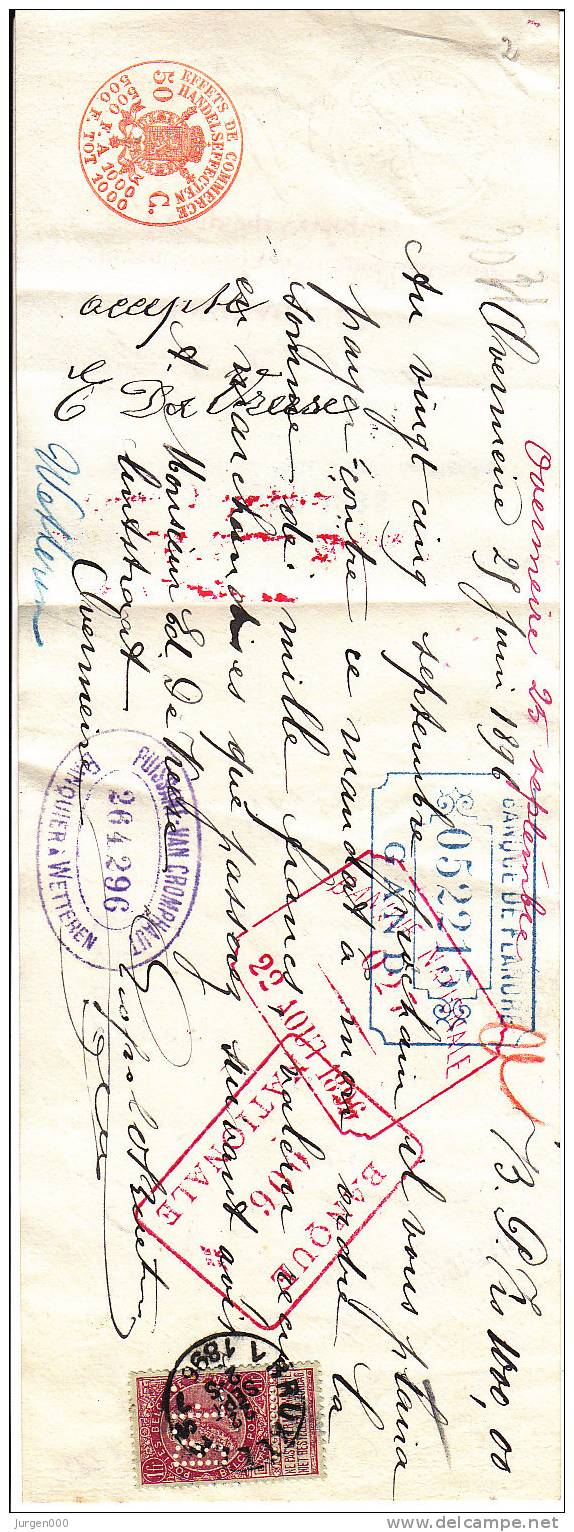 Overmeire 25 septembre
Overmeire 25 Juin 1896 B. P. Frs 1000,00
Au vingt cinq septembre prochain il vous plaira
payer contre ce mandat à mon ordre la
somme de mille francs, valeur
en marchandises que passerez suivant avis
A. Monsieur Ed. De Vreese
Lintstraat
Overmeire
accepté
E De Vreese
Wetteren
EFFETS DE COMMERCE
HANDELSEFFECTEN
50 C.
500 F. A 1000
500 F. TOT 1000
BANQUE DE FLANDRE
052215
GAND
BANQUE NATIONALE
22 AOUT 1896
BANQUE
NATIONALE
VAN CROMPHAUT
264296
BANQUIER A WETTEREN
1896
jurgen000
delcampe.net